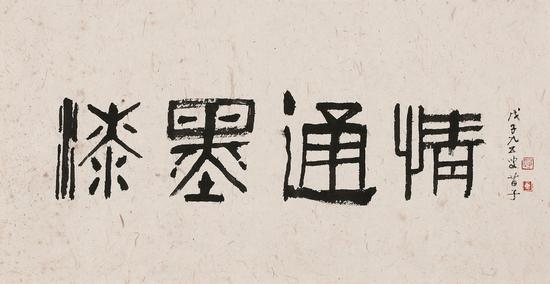 漆墨通情
戊子九五叟苗子